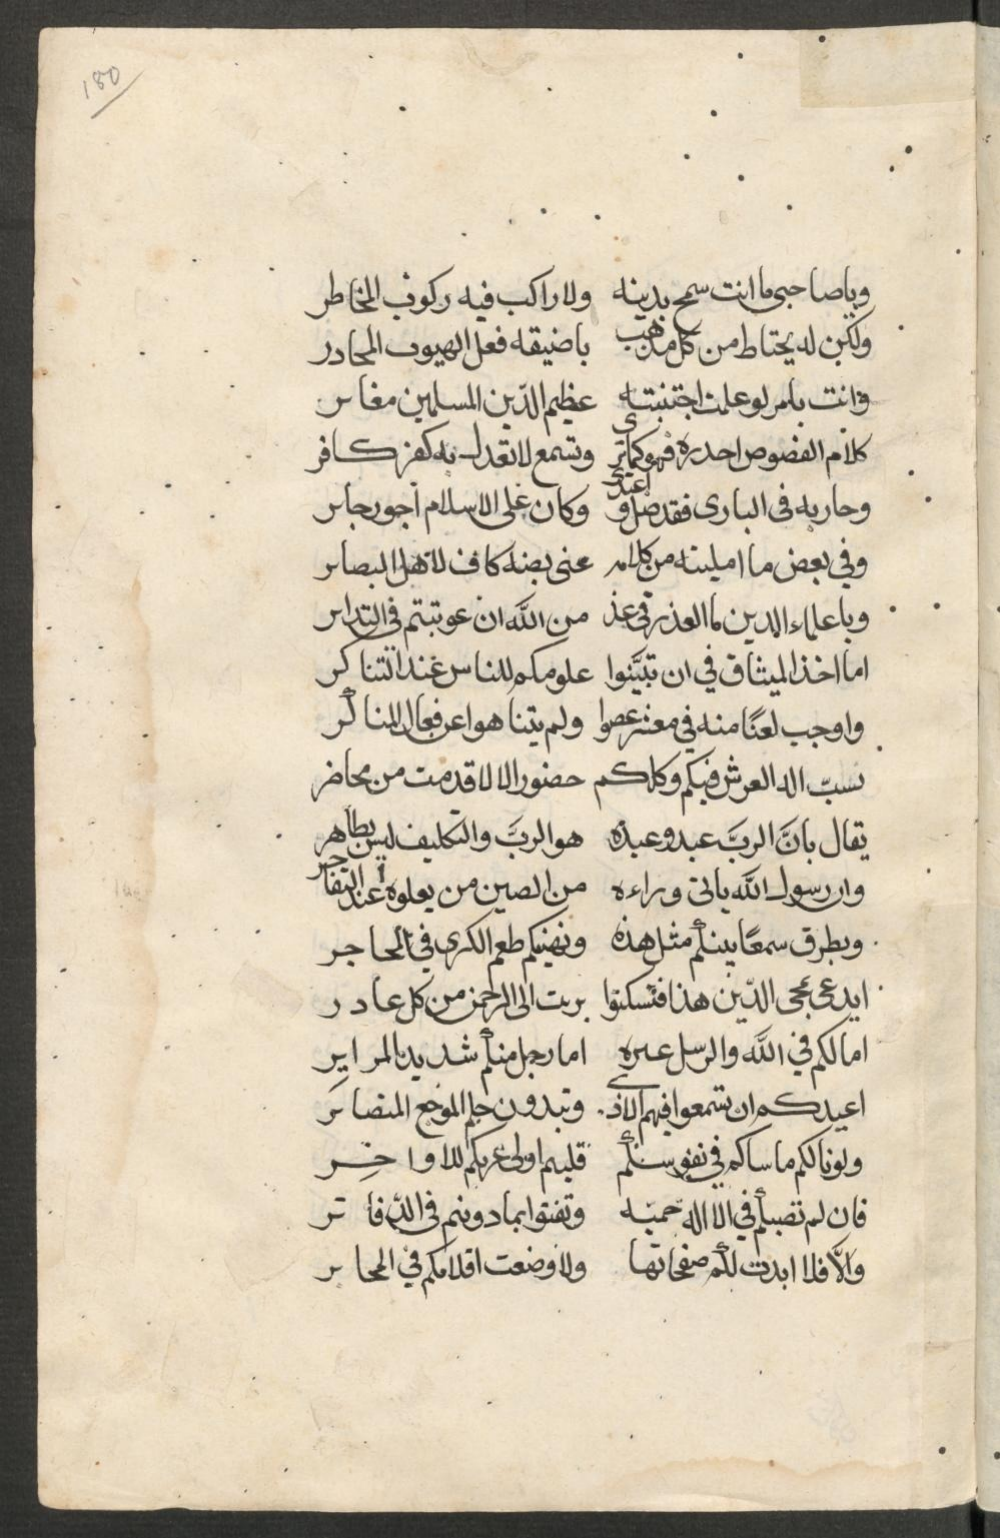 180
وياصاحبى ما انت سمح بدينه ولا راكب فيه ركوب المخاطر
ولكن له يحتاط من كل مذهب باضيقه فعل الهيوب المحادر
وانت بامر لو علمت اجتنبته عظيم الدّين المسلمين مغاير
كلام الفصوص احذره فهو كما ترى وتسمع لا تعدل به كفر كافر
وحاربه فى البارى فقد ضل واعتدى وكان على الاسلام اجور جاير
وفي بعض ما امليته من كلامه عنى بضه كاف لاهل البصاير
ويا علماء الدين ما العذر فى غد من الله ان عوتبتم فى التدابر
اما اخذ الميثاق في ان تبيّنوا علومكم للناس عند التناكر
واوجب لعنًا منه في معشر عصوا ولم يتناهوا عن فعال المناكر
نسبّ اله العرش فيكم وكلكم حضور الا لا قدمت من محاضر
يقال بانّ الربّ عبد وعبده هو الربّ والتكليف ليس بظاهر
وان رسول الله ياتى وراءه من الصين من يعلوه عند التفاخر
ويطرق سمعًا بينكم مثل هذه ونهنيكم طعم الكرى في المحاجر
ايدعى بمحى الدّين هذا فتسكتوا بريت الى الرحمن من كل عادر
اما لكم في الله والرسل غيره اما رجل منكم شديد المراير
اعيدكم ان تسمعوا فيهم الاذى وتبدون حلم الموجع المتصابر
ولو نالكم ما ساكم في نفوسكم قليتم اولى غربكم للاواخر
فان لم تصبكم في الاله حميّه وتفتوا بما دونتم فى الدفاتر
والّا فلا ابدت لكم صفحاتها ولا وضعت اقلامكم في المحابر